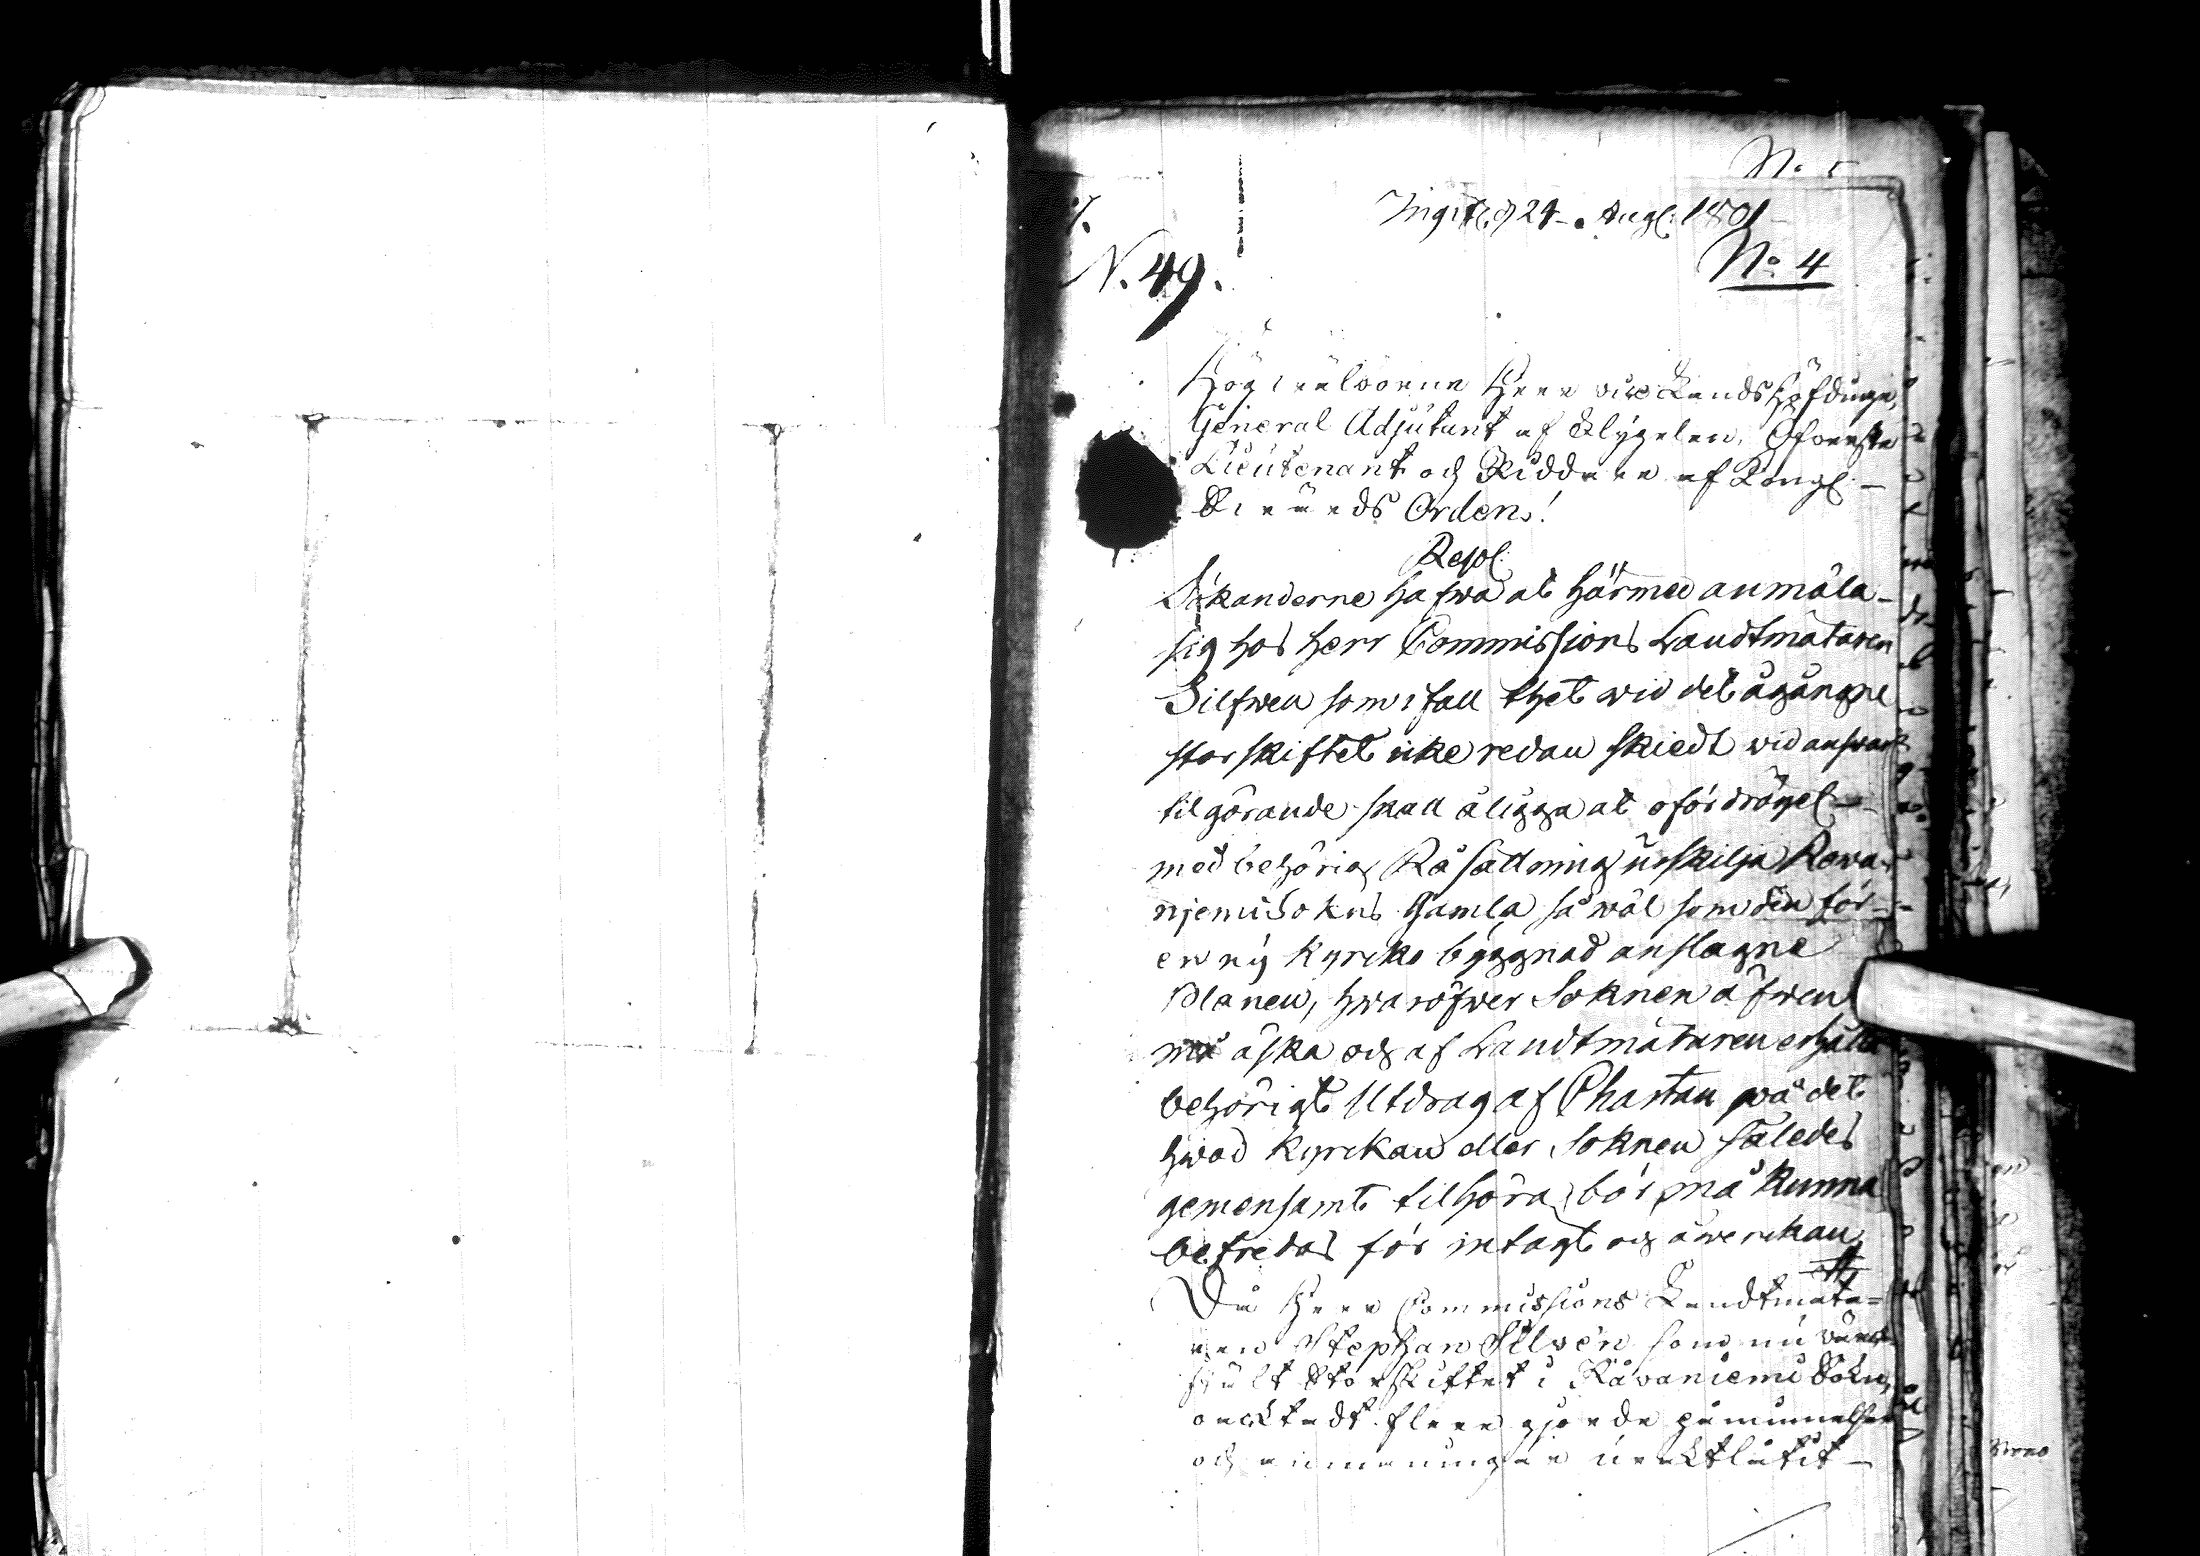 No 5
Ingifl. d 24 Aug: 1801
No 4
N. 49.
Högwälborne Herr vice LandsHöfdinge,
General Adjutant af Flygelen, Öfverste
Lieutenant och Riddare af Kongl:
Swärds Orden!
Resol:
Sökanderne hafwa at härmed anmäla
sig hos herr Commissions Landtmätaren
Silfwen som i fall thet wid det ågångne
storskiftet icke redan skiedt wid answars
tilgörande skall åligga at ofördröyel
med behörig Råsättning urskilja Rowa
njemi Sokns gamla så wäl som den för
en ny kyrko byggnad anslagne
Planen, hwaröfwer Soknen äfwen
må äska och af Landtmätaren erhålla
behörigt Utdrag af Chartan på det
hwad kyrkan eller Soknen således
gemensamt tilhöra bör, må kunna
befredas för intagt och åwerckan
Då Herr Commissions Landtmäta=
ren Stephan Silvén som nu värck
stält Storskiftet i Råvaniemi Sokn,
oacktadt flere gjorde påminnelser
och anmaningar uracktlåtit